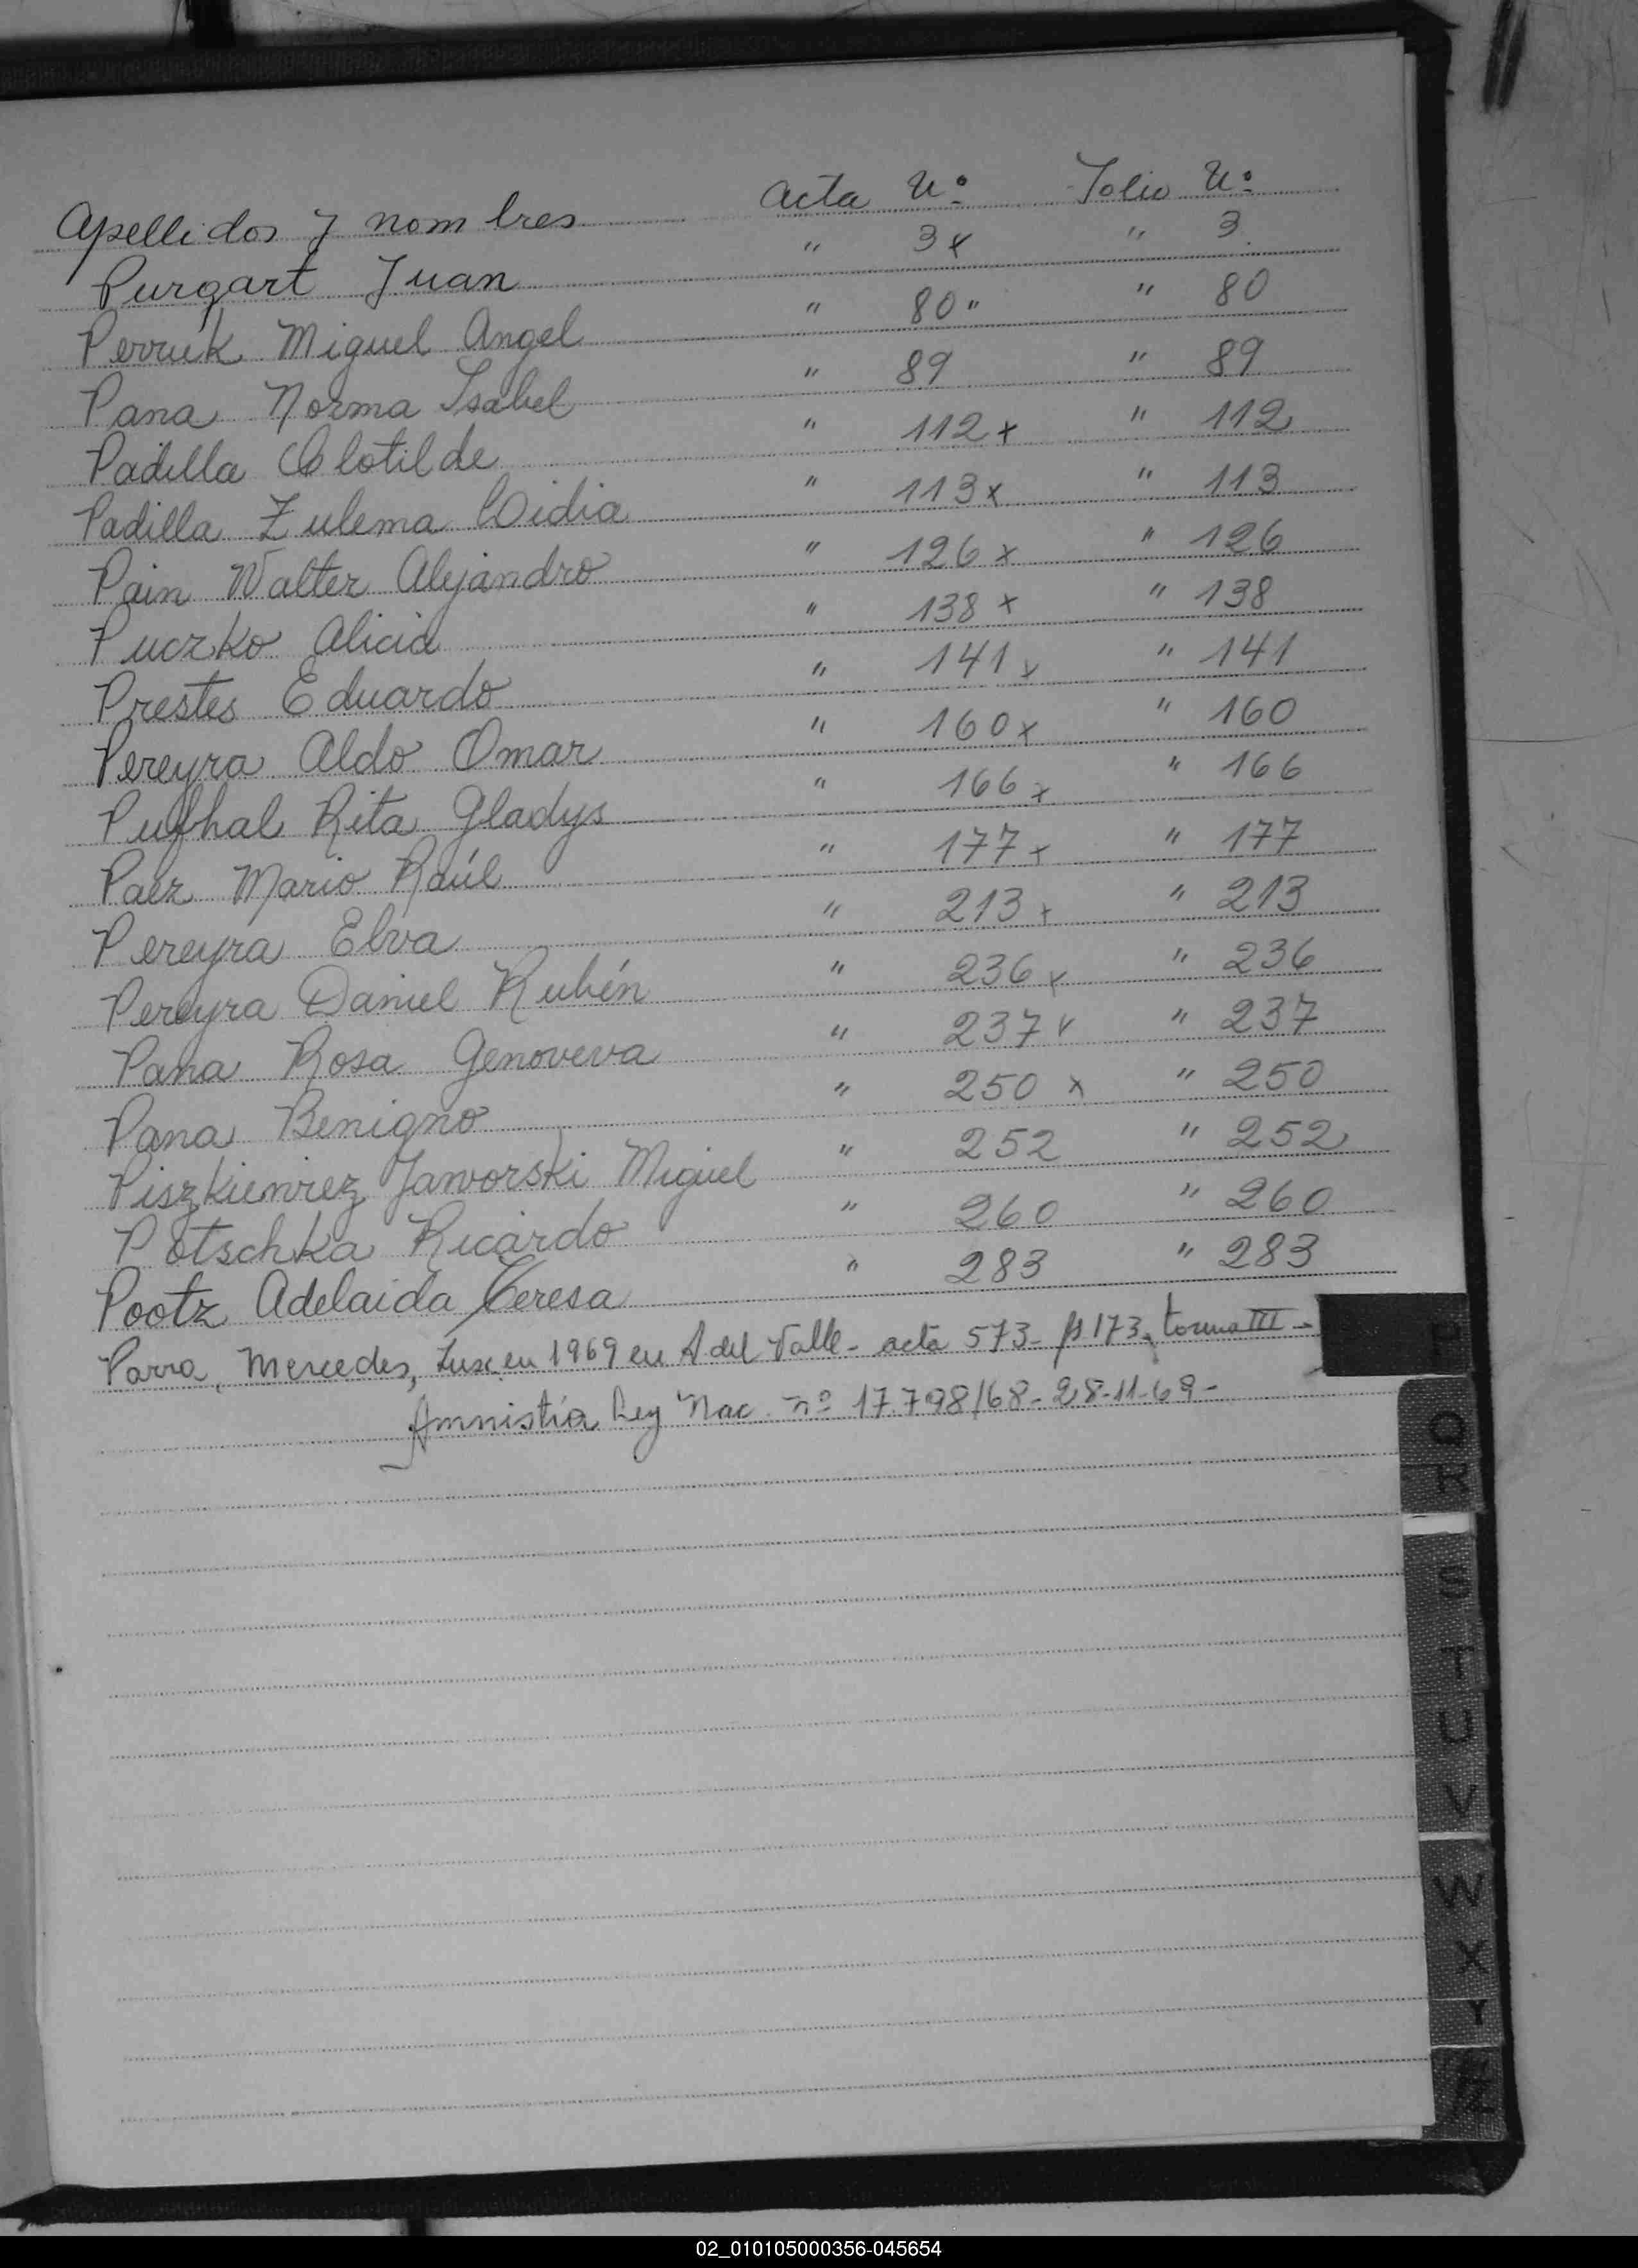 Apellidos y nombres Acta Nº Folio Nº
Purgart Juan " 3 x " 3
Perruk Miguel Angel " 80 " " 80
Pana Norma Isabel " 89 " 89
Padilla Clotilde " 112 x " 112
Padilla Zulema Lidia " 113 x " 113
Pain Walter Alejandro " 126 x " 126
Puczko Alicia " 138 x " 138
Prestes Eduardo " 141 x " 141
Pereyra Aldo Omar " 160 x " 160
Pufhal Rita Gladys " 166 x " 166
Paez Mario Raúl " 177 x " 177
Pereyra Elva " 213 x " 213
Pereyra Daniel Rubén " 236 x " 236
Pana Rosa Genoveva " 237 x " 237
Pana Benigno " 250 x " 250
Piszkiewiez Jaworski Miguel " 252 " 252
Potschka Ricardo " 260 " 260
Pootz Adelaida Teresa " 283 " 283
Parra, Mercedes, en 1969 en A del Valle - acta 573 - f 173, tomo III -
Amnistía Ley Nac. nº 17.798/68 - 28-11-69 -
P
Q
R
S
T
U
V
W
X
Y
Z
02_010105000356-045654